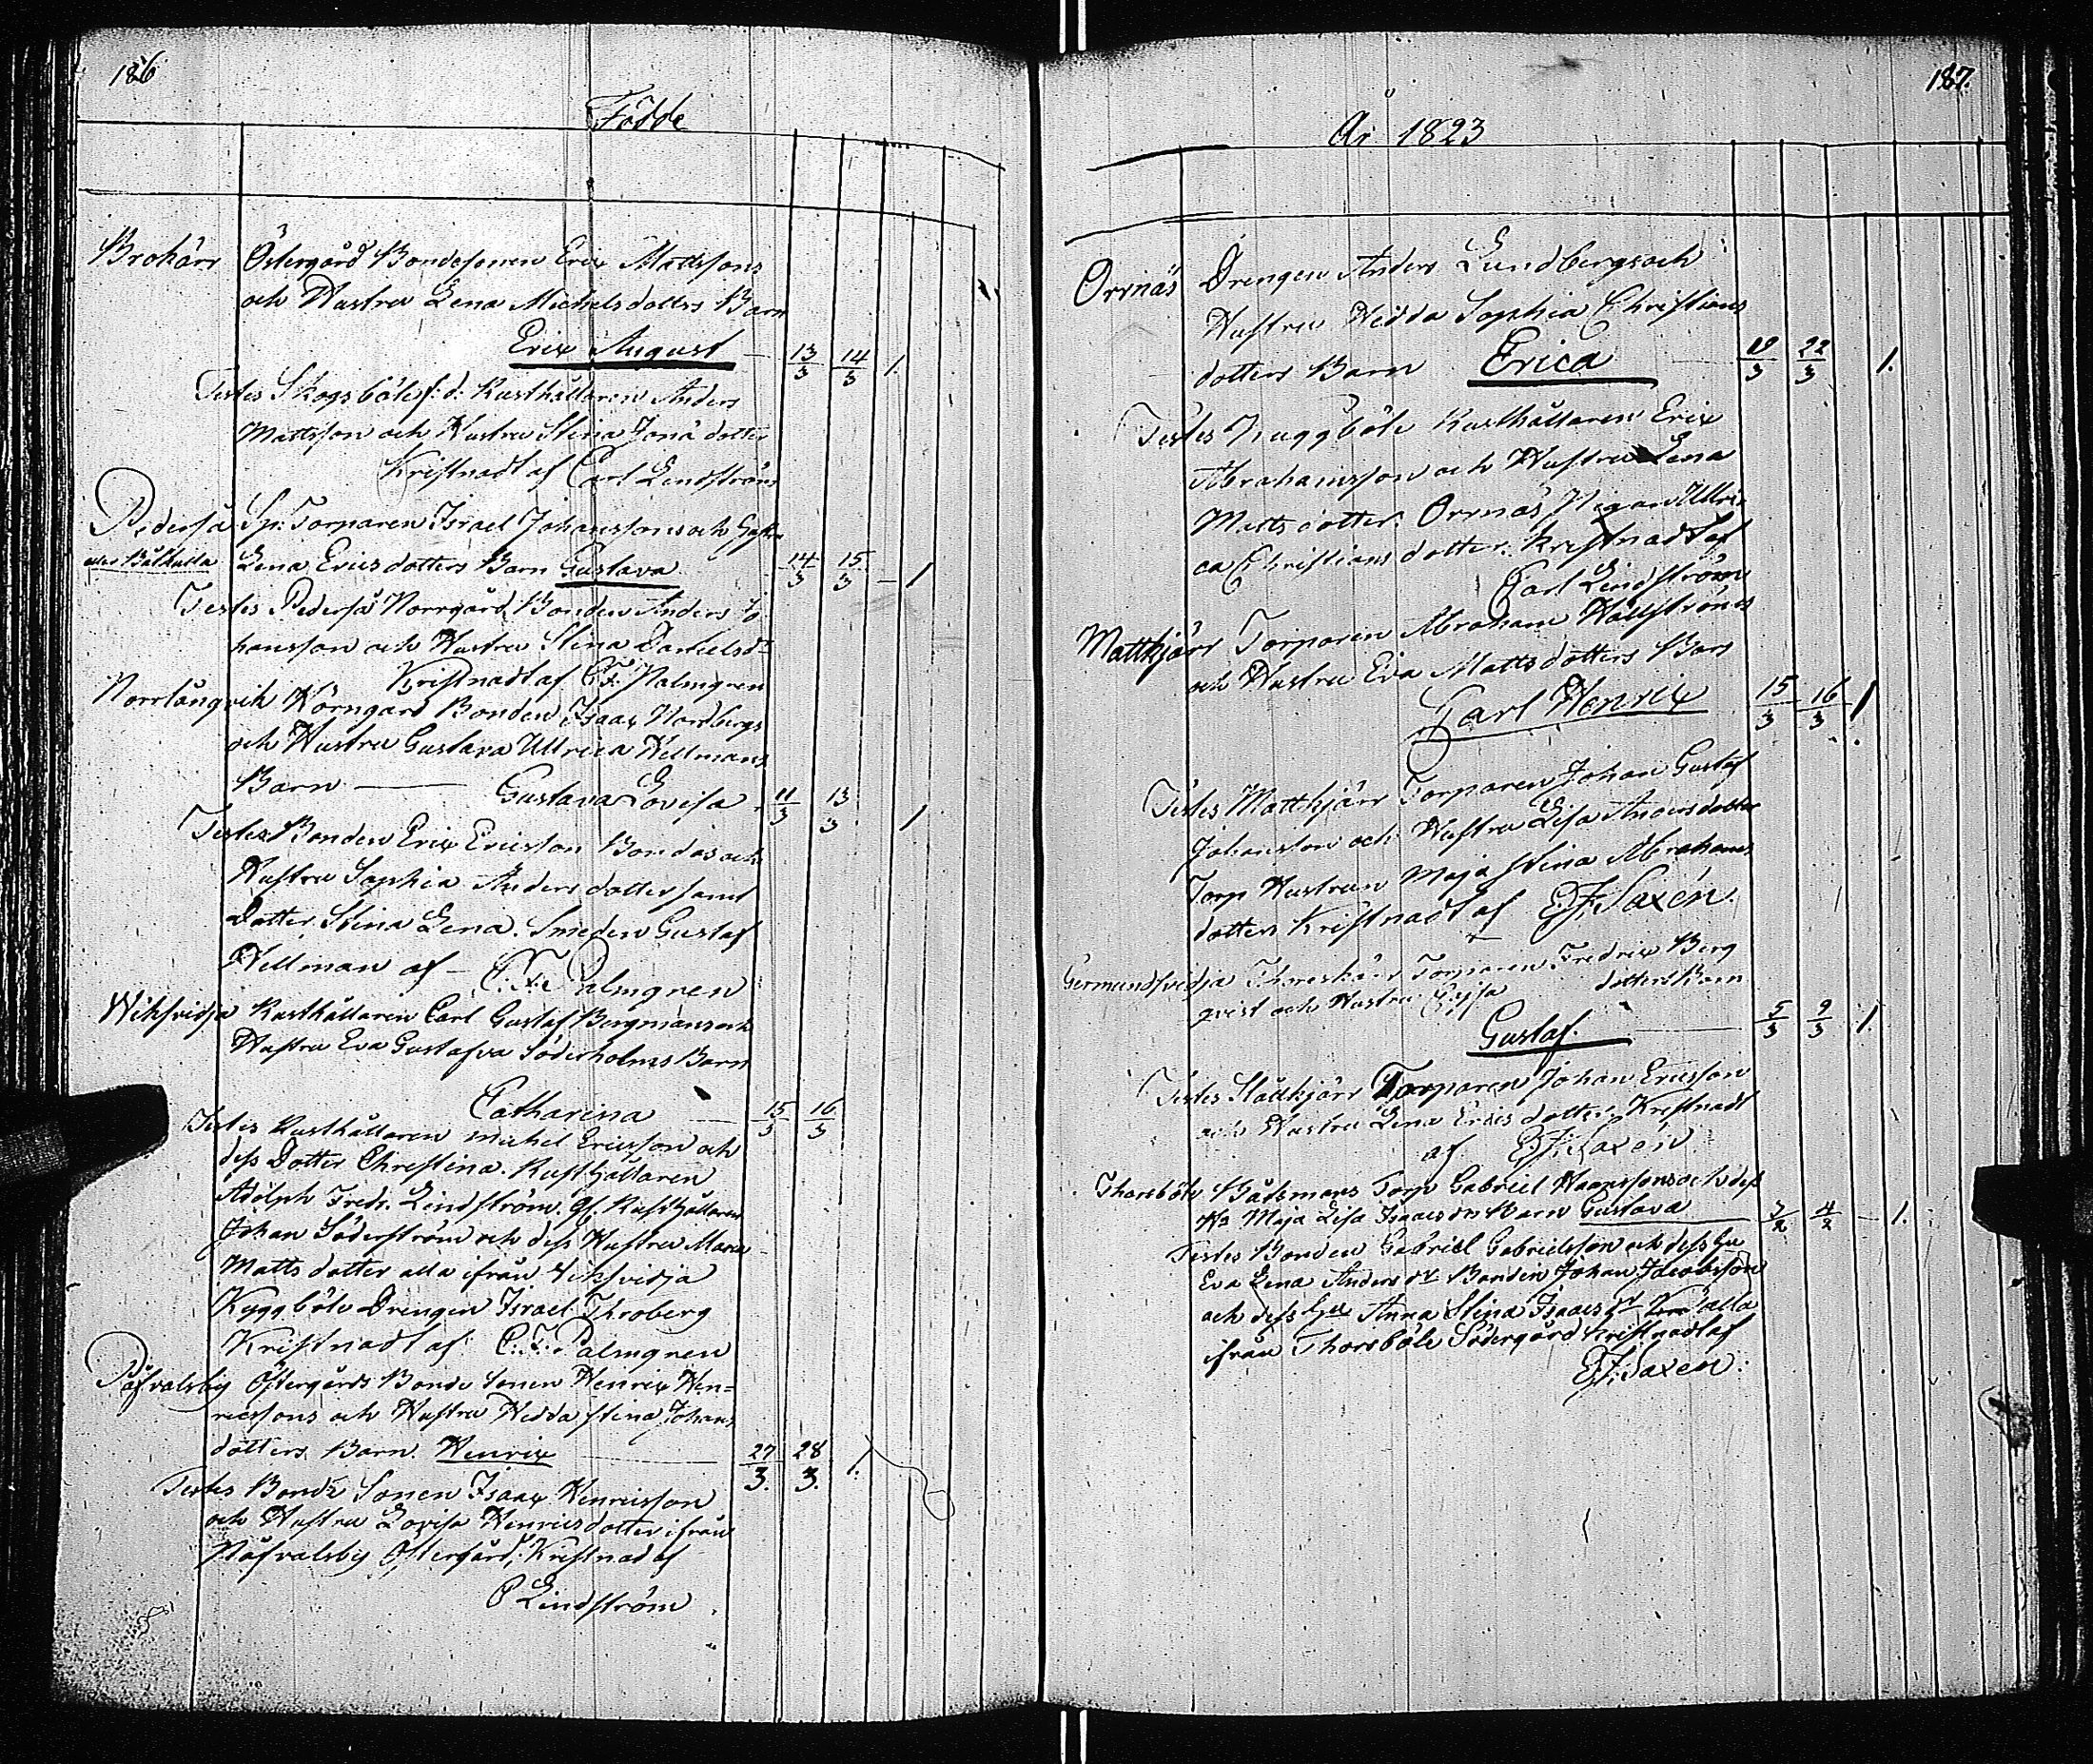 186
Födde
Brokärr Östergård Bondesonen Erix Mattssons
och Hustru Lena Michelsdotters Barn
Erix August 13/3 14/3 1.
Testes Skogsböle f: d: Rusthållaren Anders
Mattsson och Hustru Stina Jonä dotter
Kristnadt af Carl Lindström
Pederså Torparen Israel Johanssons och
Lena Ericsdotters Barn Gustava 14/3 15/3 – 1
Testes Pederså Norrgård Bonden Anders Jo
hansson och Hustru Stina Danielsdr
Kristnadt af C. F. Palmgren
Norrlångvik Bonden Isaax Nordbergs
och Hustru Gustava Ullrica Hellmans
Barn — Gustava Lovisa 11/3 13/3 1
Testes Bonden Erix Ericsson och
Hustru Sophia Anders dotter samt
Dotter Stina Lena. Smeden Gustaf
Hellman af – C. F. Palmgren
Wiksvidja Rusthållaren Carl Gustaf Bergmans och
Hustru Eva Gustafva Söderholms Barn
Catharina 15/3 16/3
Testes Rusthållaren Michel Ericsson och
dess Dotter Christina. Rusthållaren
Adolph Fredr. Lindström. Gf. Rusthållaren
Johan Söderström och dess Hustru Maria
Matts dotter alla ifrån Viksvidja
Kyggböle Drengen Israel Throberg
Kristnadt af C. F. Palmgren
Påfvalsby Östergårds Bonde Sonen Henrix Hen=
ricssons och Hustru Hedda Stina Johans
dotters Barn. Henrix 27/3. 28/3. 1.
Testes Bonde Sonen Isaax Henricsson
och Hustru Lovisa Henricsdotter ifrån
Påfvalsby Östergård, Kristnad af
C Lindström
187.
År 1823
Orrnäs Drengen Anders Lundbergs och
Hustru Hedda Sophia Christians
dotters Barn Erica 19/3 22/3 1.
Testes Kuggböle Rusthållaren Erix
Abrahamsson och Hustru Lena
Matts dotter. Orrnäs Pigan Ullri
ca Christians dotter. Kristnadt af
Carl Lindström
Mattkjärr Torparen Abraham Hällströms
och Hustru Eva Mattsdotters Barn
Carl Henrix 15/3 16/3 1
Testes Mattkjärr Torparen Johan Gustaf
Johansson och Hustru Lisa Andersdotter
Torp Hustrun Maja Stina Abrahams
dotter Kristnadt af E. J. Saxén.
Germundsvidja Torparen Fredrix Berg
qvist och Hustru Cajsa dotters Barn
Gustaf. 5/3 9/3 1.
Testes Slättkjärr Torparen Johan Ericsson
och Hustru Lena Erics dotter. Kristnadt
af E. J. Saxén
Thorsböle Båtsmans Torp Gabriel och dess
Ha Maja Lisa Isaacs drs Barn Gustava 3/2 4/2 – 1.
Testes Bonden Gabriel Gabrielsson och dess Hu
Eva Lena Anders dr Bonden Johan Jacobsson
och dess Hu Anna Stina Isaacs dr alla
ifrån Thorsböle Södergård Kristnadt af
E. J. Saxén.